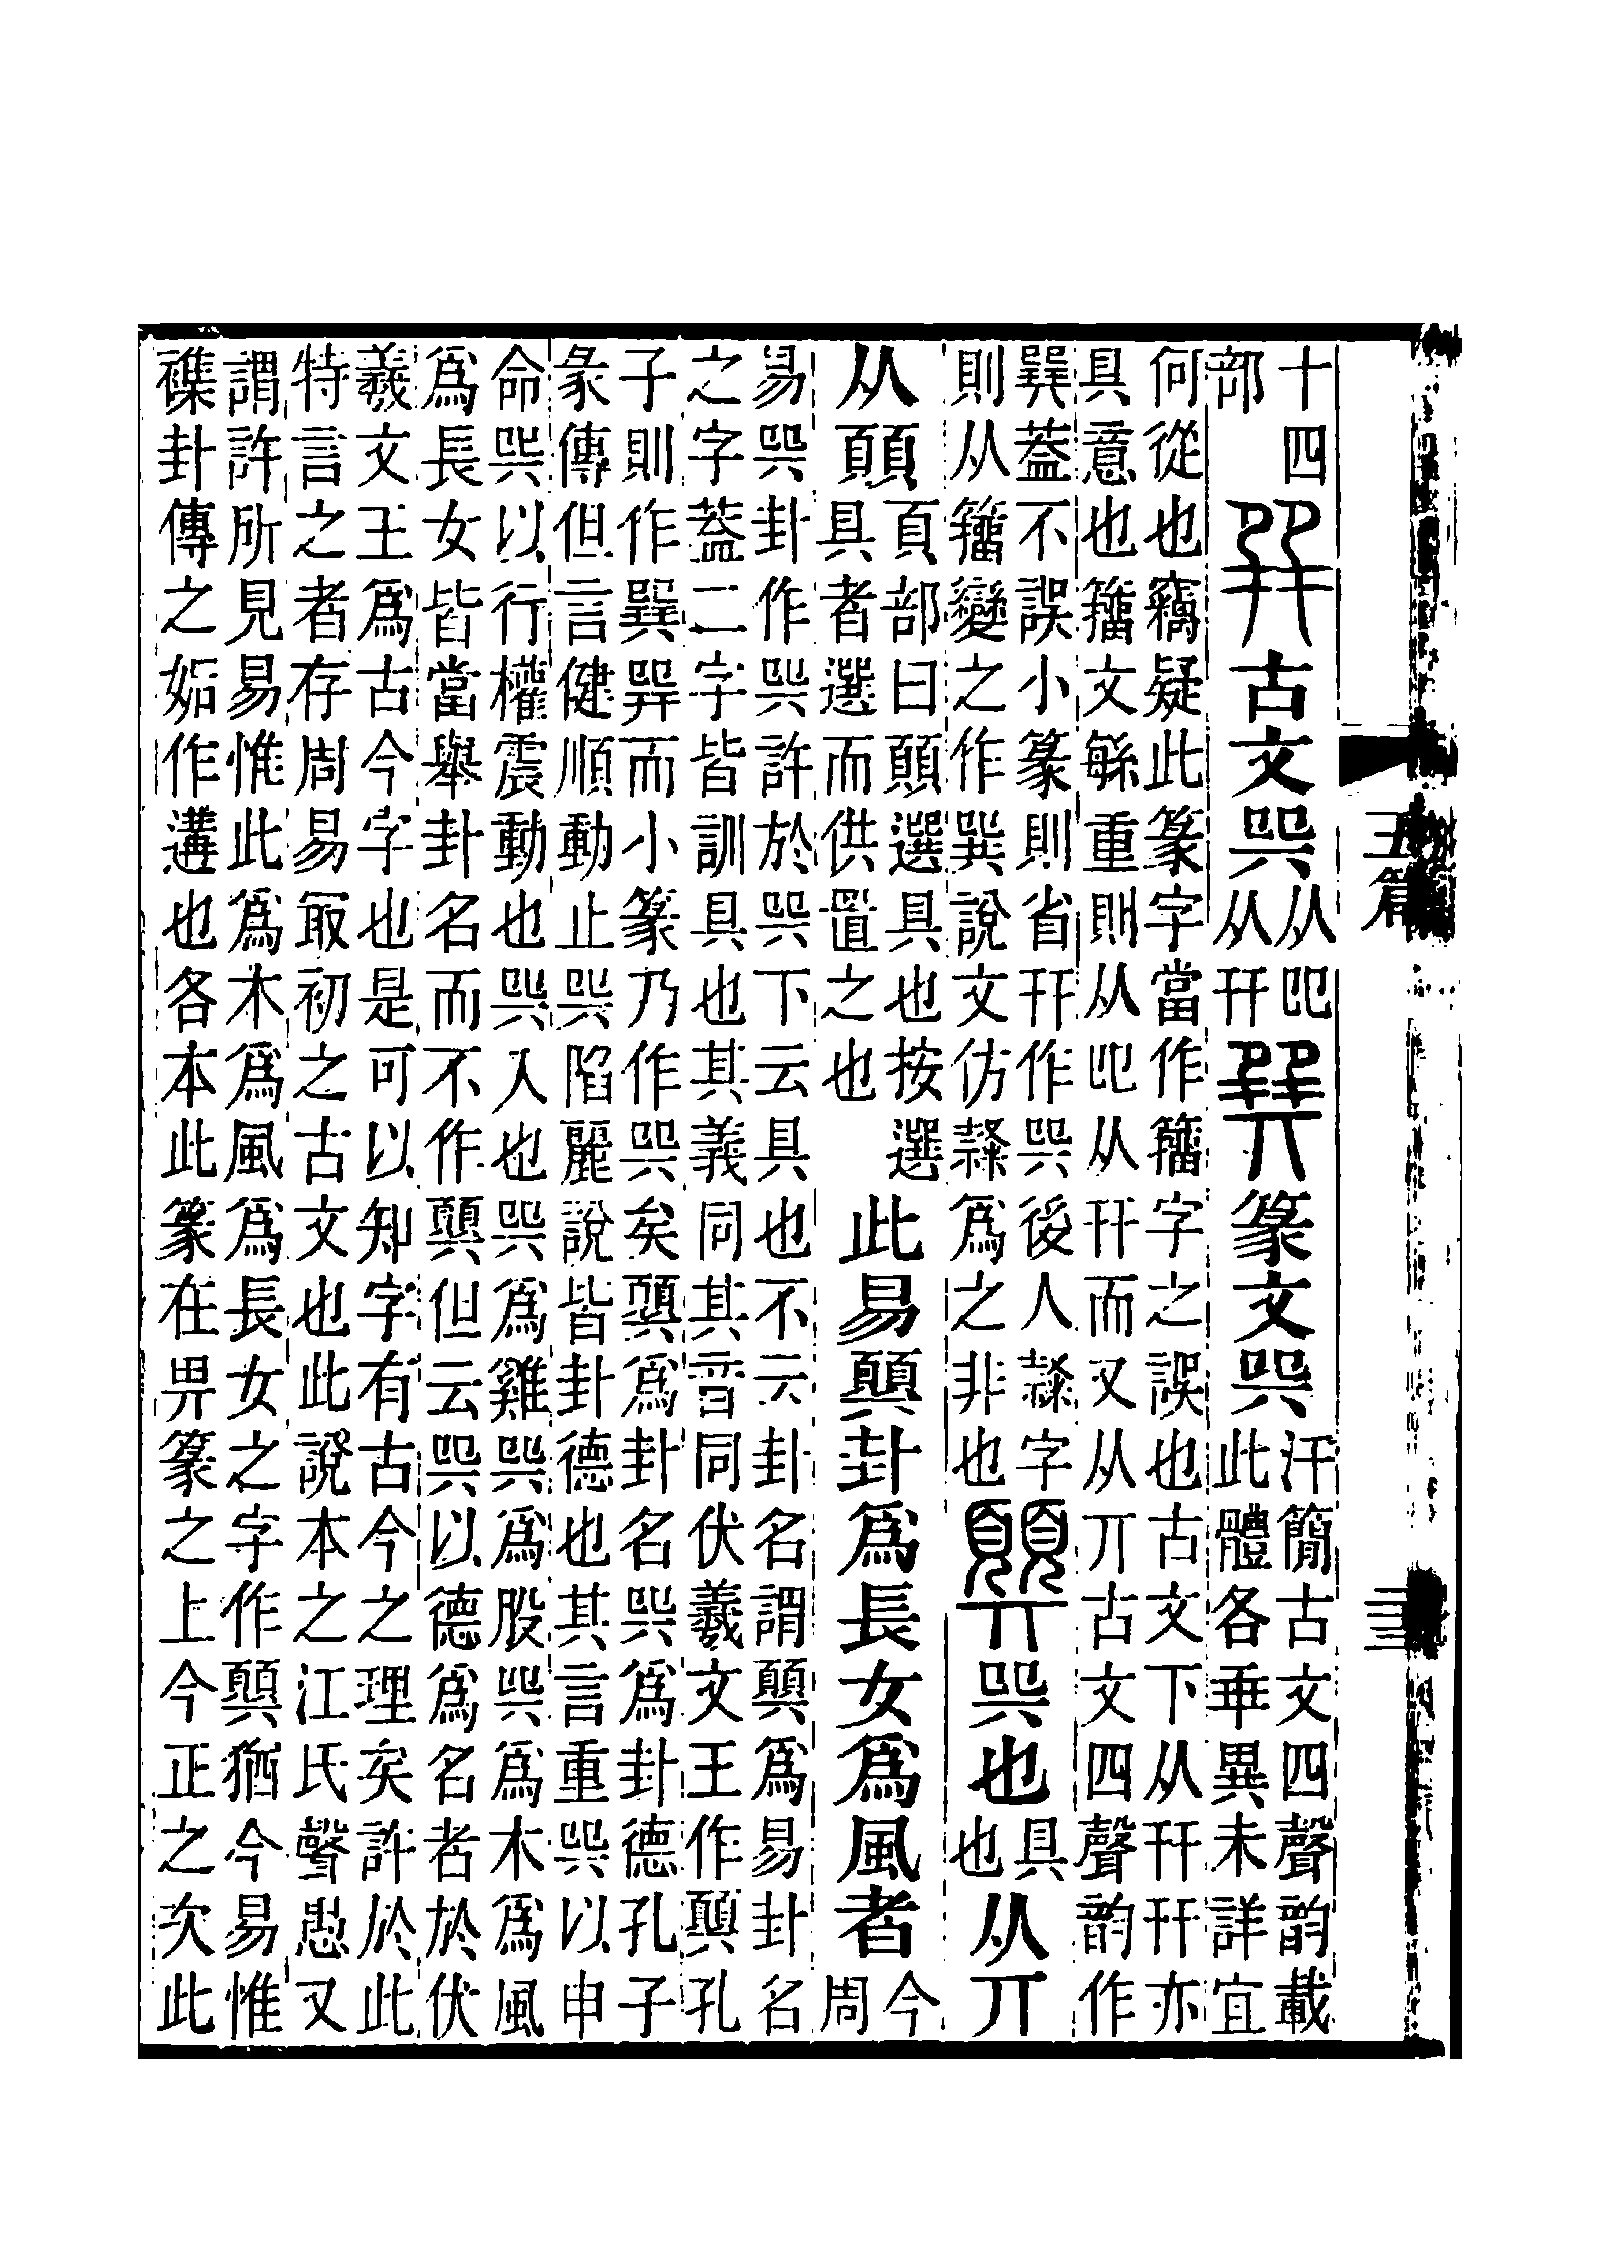 十四
部
古文巺
从𠨎
从幵
篆文巺
汗簡古文四聲韵載
此體各乖異未詳宜
何從也竊疑此篆字當作籒字之誤也古文下从幵幵亦
具意也籒文緐重則从𠨎从幵而又从丌古文四聲韵作
巽蓋不誤小篆則省幵作巺後人隸字
則从籒變之作巽說文仿隸爲之非也
巺也
具
也
从丌
从𩑹
頁部曰𩑹選具也按選
具者選而供置之也
此易𩕄卦爲長女爲風者
今
周
易巺卦作巺許於巺下云具也不云卦名謂𩕄爲易卦名
之字蓋二字皆訓具也其義同其音同伏羲文王作𩕄孔
子則作巽𢁅而小篆乃作巺矣𩕄爲卦名巺爲卦德孔子
彖傳但言健順動止巺陷麗說皆卦德也其言重巺以申
命巺以行權震動也巺入也巺爲雞巺爲股巺爲木爲風
爲長女皆當舉卦名而不作𩕄但云巺以德爲名者於伏
羲文王爲古今字也是可以知字有古今之理矣許於此
特言之者存周易冣初之古文也此說本之江氏聲愚又
謂許所見易惟此爲木爲風爲長女之字作𩕄猶今易惟
襍卦傳之姤作遘也各本此篆在畀篆之上今正之次此
五篇